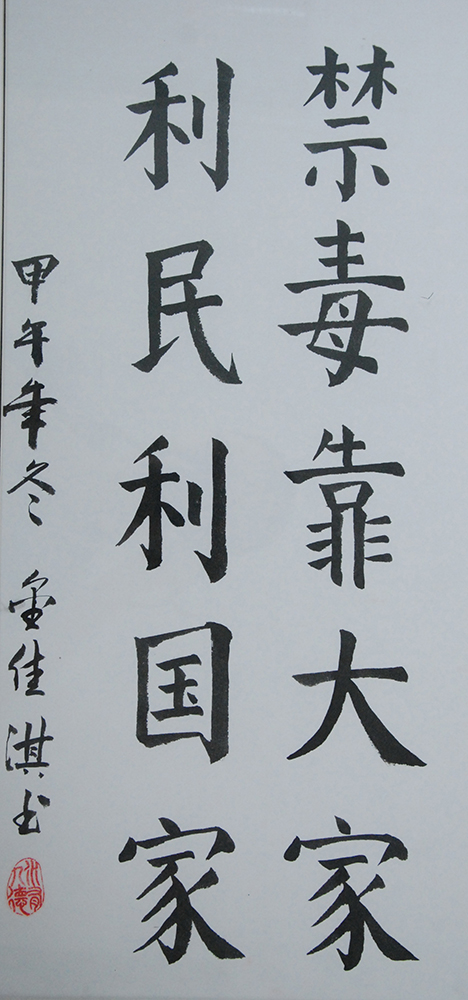 禁毒靠大家
利民利国家
甲午年冬 金佳淇书